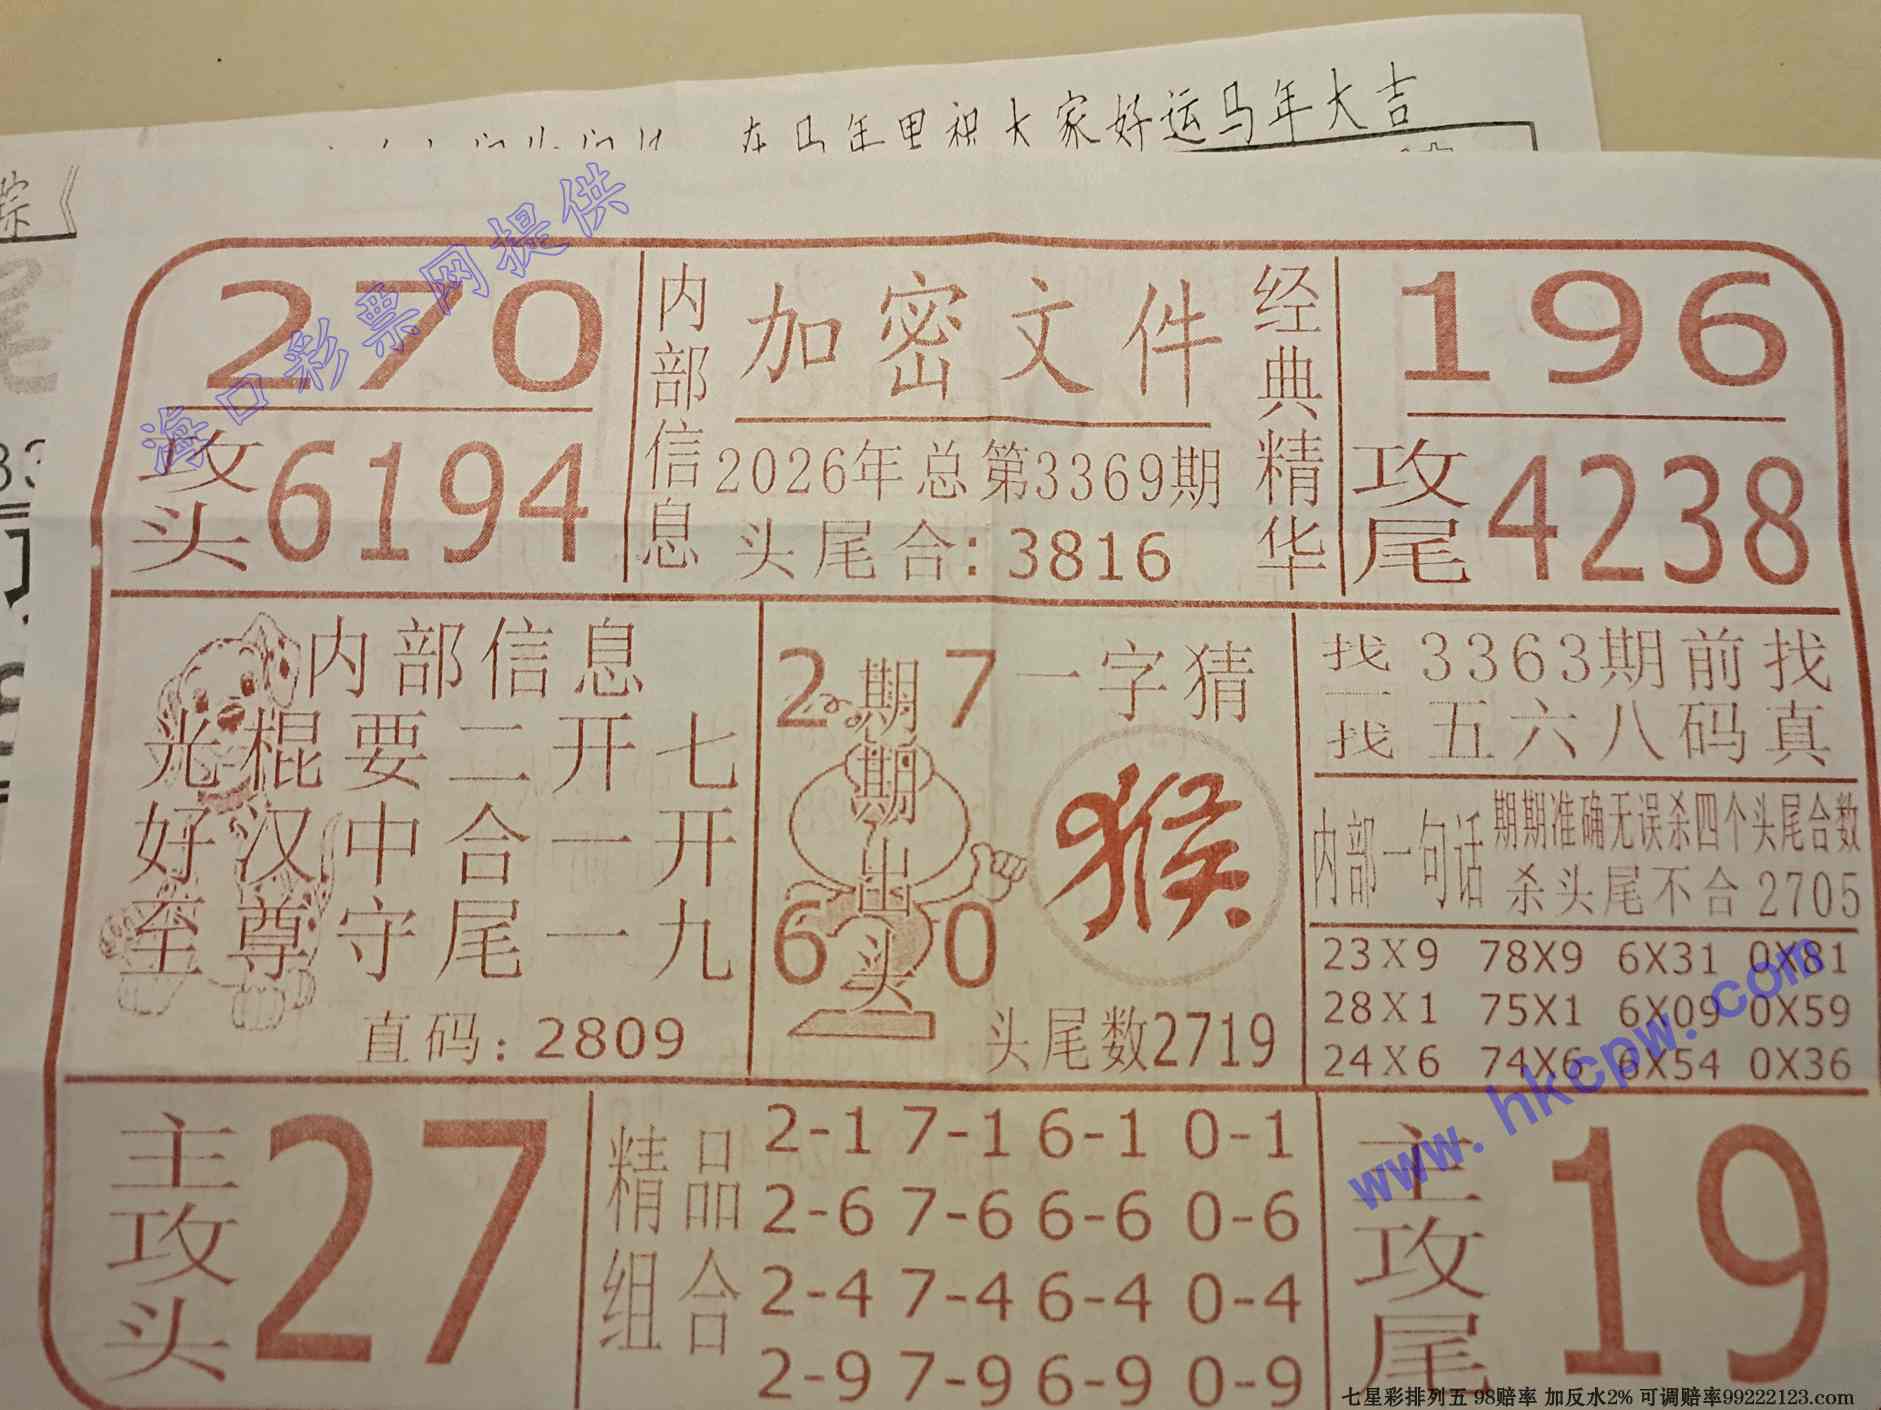 在马年里祝大家好运马年大吉
海口彩票网提供
270
攻头 6194
内部信息
加密文件
2026年总第3369期
头尾合:3816
经典精华
196
攻尾 4238
内部信息
光棍要二开七
好汉中合一开
至尊守尾一九
直码:2809
2 7
期期出头
6 0
一字猜
猴
头尾数2719
找一找
3363期前找
五六八码真
内部一句话
期期准确无误杀四个头尾合数
杀头尾不合2705
23X9 78X9 6X31 0X81
28X1 75X1 6X09 0X59
24X6 74X6 6X54 0X36
www.hkcpw.com
主攻头 27
精品组合
2-1 7-1 6-1 0-1
2-6 7-6 6-6 0-6
2-4 7-4 6-4 0-4
2-9 7-9 6-9 0-9
主攻尾 19
七星彩排列五 98赔率 加反水2% 可调赔率99222123.com